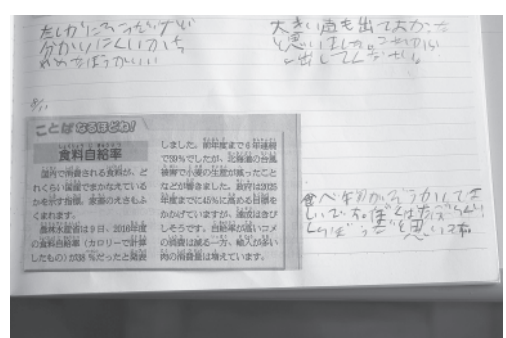 たしかにそうだけど
分かりにくいから
やめたほうがいい
大きい声を出てよかった
と思いました。
出してください。
8/11
ことば なるほどね!
食料自給率
国内で消費される食料が、ど
れくらい国産でまかなえている
かを示す指標。家畜のえさもふ
くまれます。
農林水産省は9日、2016年度
の食料自給率(カロリーで計算
したもの)が38%だったと発表
しました。前年度まで6年連続
で39%でしたが、北海道の台風
被害で小麦の生産が減ったこと
などが響きました。政府は2025
年度までに45%に高める目標を
かかげていますが、達成はきび
しそうです。自給率が高いコメ
の消費は減る一方、輸入が多い
肉の消費量は増えています。
食べ物が
いです。ぼくは
と思います。